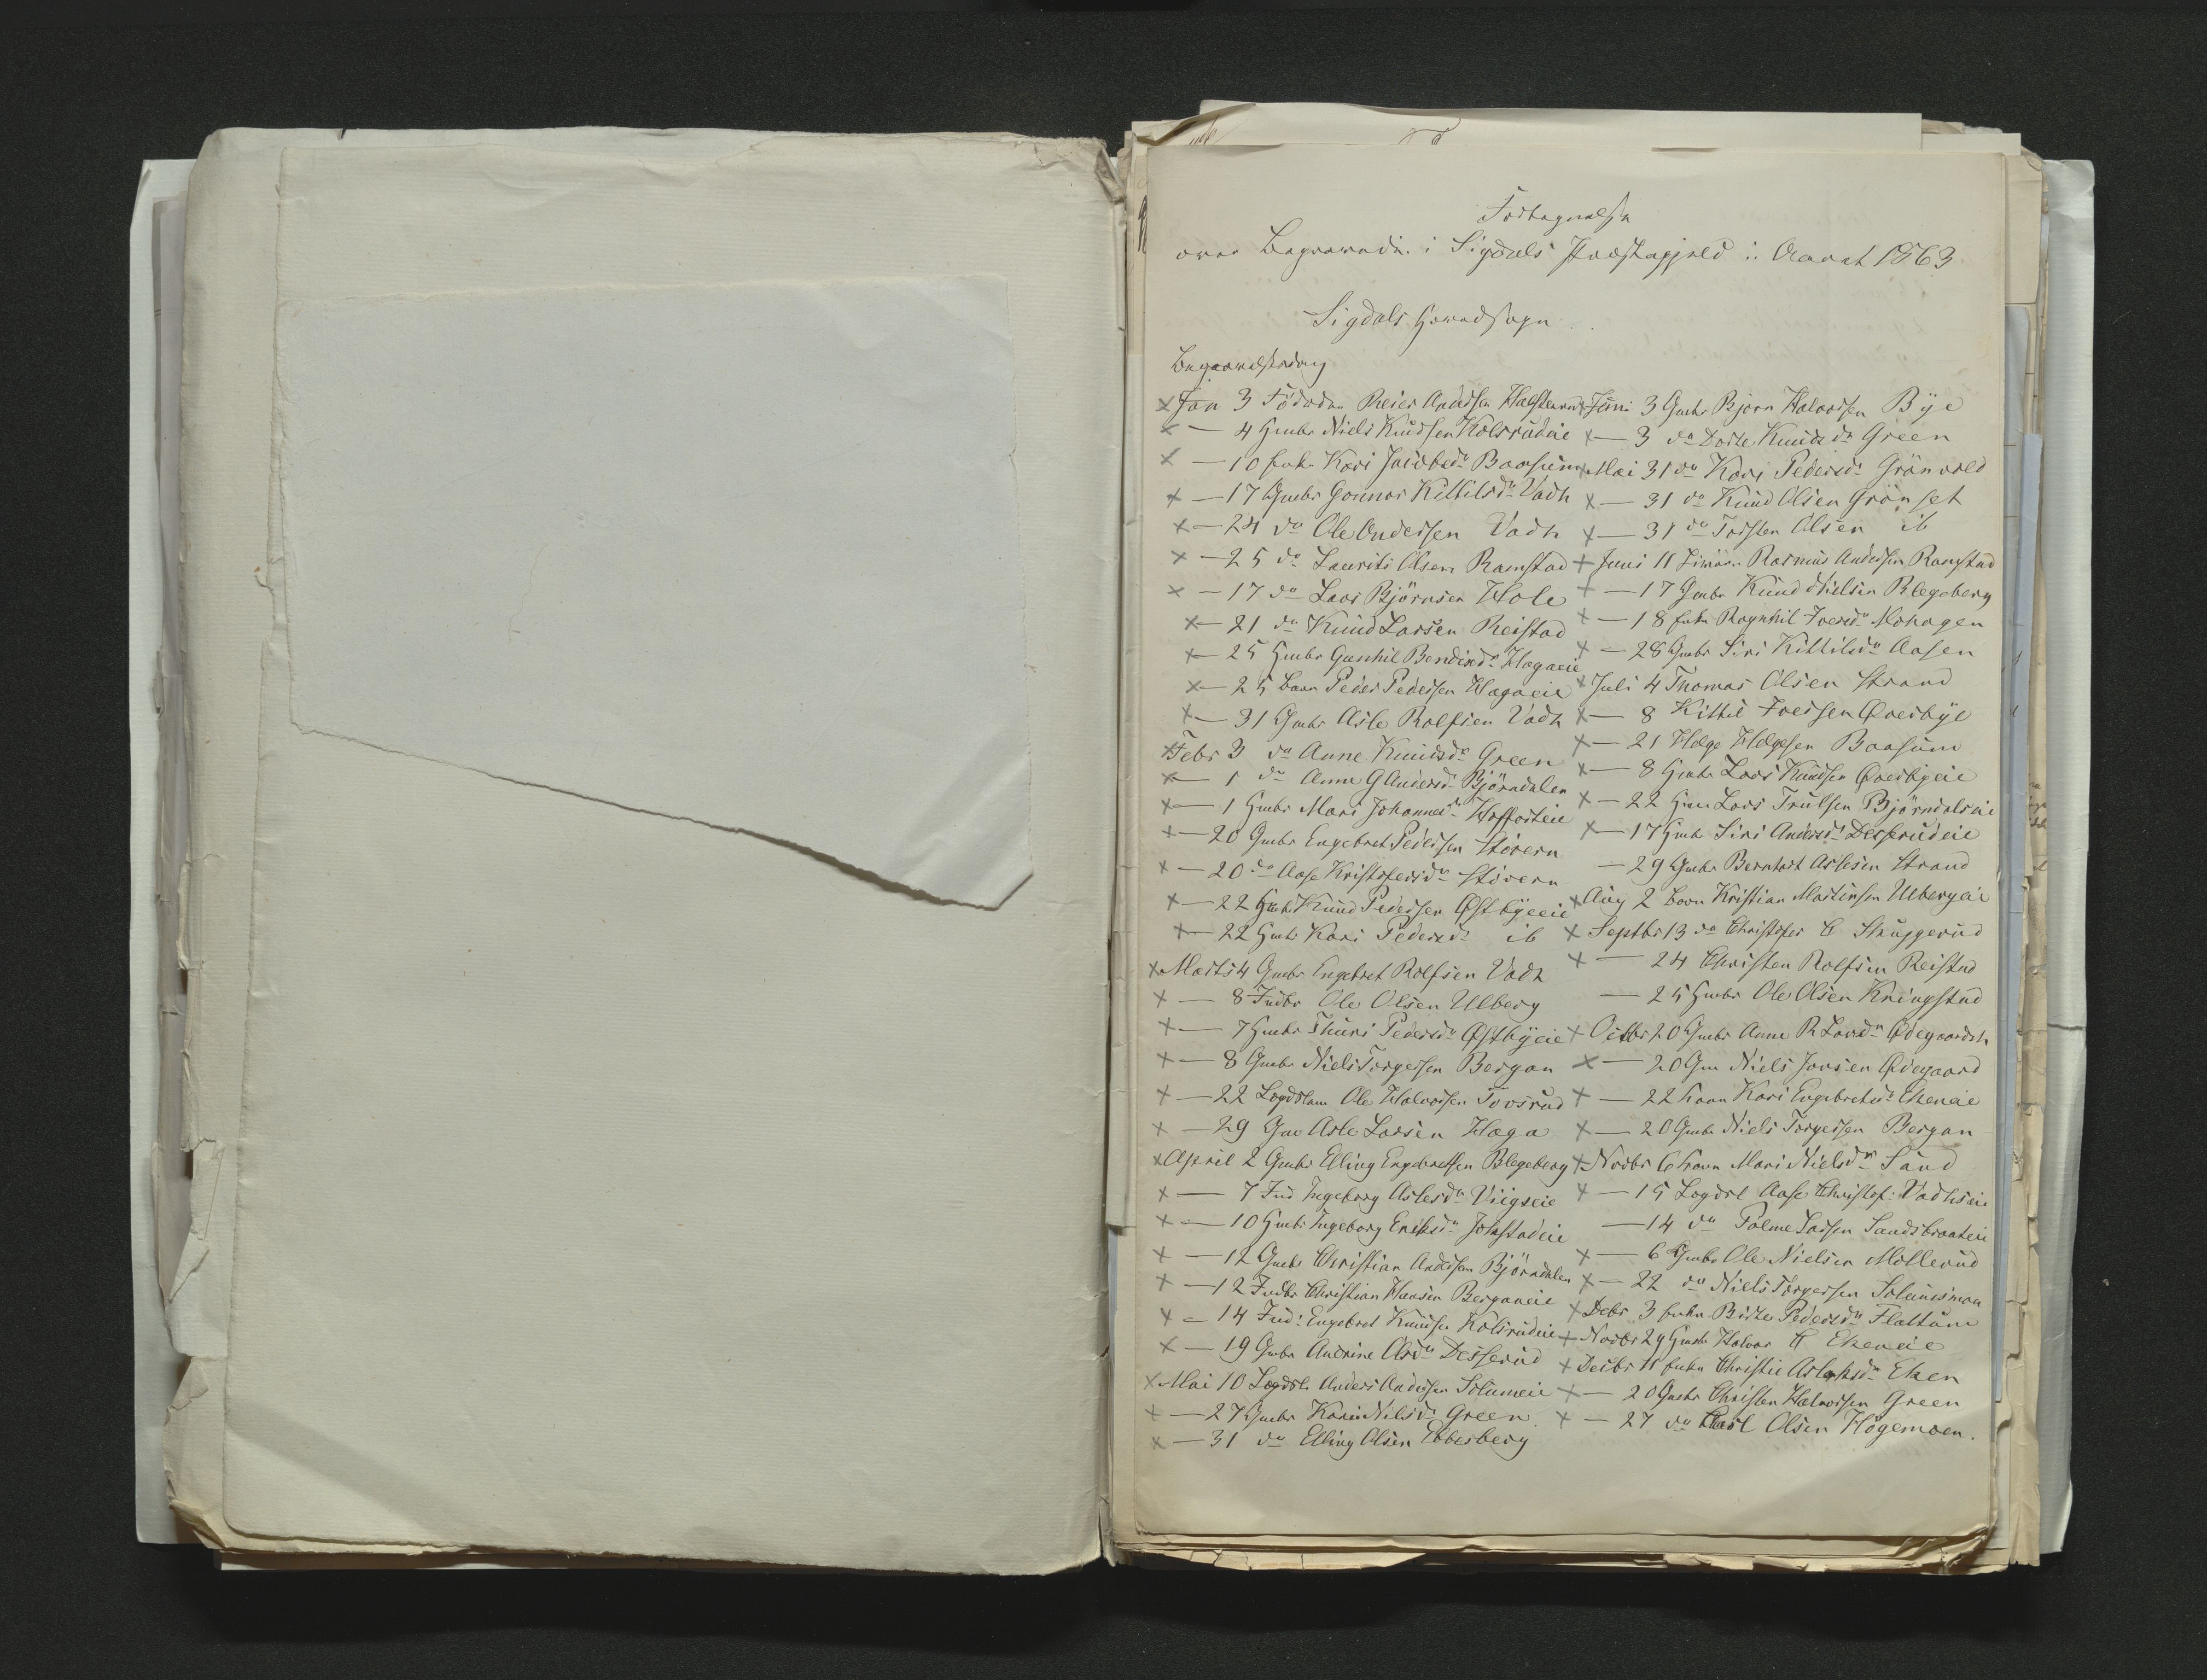 Fortegnelse
over Begravede i Sigdals Præstegjeld i Aaret 1863
Sigdals Hovedsogn
Begravelsesdag
× Jan 3 Födsdr. Reier Andersen
× — 4 Gmbr Niels Knudsen Kolsrudeie
× — 10 Kari Jacobsdr Baasum
× — 17 Gmbr Gunnor Kittilsdr Vadh
× — 24 do Ole Andersen Vadh
× — 25 do Laurits Olsen Ramstad
× — 17 do Lars Björnsen Hole
× — 21 do Knud Larsen Reistad
× — 25 Gmbr Gunhil Bendixdr Hagaeie
× — 25 Barn Peder Pedersen Hagaeie
× — 31 Gmbr Asle Rolfsen Vadh
× Febr 3 do Anne Knudsdr Green
× — 1 do Anne G Andersdr Björndalen
× — 1 Gmbr Mari Johannesdr Hafforteie
× — 20 Gmbr Engebret Pedersen Störern
× — 20 do Aase Kristofersdr Störern
× — 22 Gmbr Knud Pedersen Østbyeeie
× — 22 Gmbr Kari Pedersdr ib
× Marts 4 Gmbr Engebret Rolfsen Vadh
× — 8 Indbr Ole Olsen Ulberg
× — 7 Gmbr Thuri Pedersdr Østbyeie
× — 8 Gmbr Niels Torgersen Bergan
× — 22 Lægdslem Ole Halvorsen Tovsrud
× — 29 Gm Asle Larsen Haga
× April 2 Gmbr Elling Engebretsen Blegeberg
× — 7 Ind Ingeborg Aslesdr Viigseie
× — 10 Gmbr Ingeborg Eriksdr Jokstadeie
× — 12 Gmbr Christian Andersen Björndalen
× — 12 Indbr Christian Hansen Berganeie
× — 14 Ind: Engebret Knudsen Kolsrudeie
× — 19 Gmbr Andrine Olsdr Desserud
× Mai 10 Lægdsl Anders Andersen Solumeie
× — 27 Gmbr Kari Nilsdr Green
× — 31 do Elling Olsen Ebbesberg
× Juni 3 Gmbr Bjorn Halvorsen Bye
× — 3 do Dorte Knudsdr Green
× Mai 31 do Kari Pedersdr Grönvold
× — 31 do Knud Olsen Grönset
× — 31 do Torsten Olsen ib
× Juni 11 Rasmus Andersen Ramstad
× — 17 Gmbr Knud Nielsen Blegeberg
× — 18 Ragnhil Iversdr Mohagen
× — 28 Gmbr Siri Kittilsdr Aasen
× Juli 4 Thomas Olsen Strand
× — 8 Kittil Iversen Overbye
× — 21 Helge Helgesen Baasum
× — 8 Gmbr Lars Knudsen Overbyeie
× — 22 Gmbr Lars Trulsen Björndalseie
× — 17 Gmbr Siri Andersdr Desserudeie
— 29 Gmbr Berntost Aslesen Strand
× Aug 2 Barn Kristian Martinsen Ulbergeie
× Septbr 13 do Christofer C Skuggerud
× — 24 Christen Rolfsen Reistad
— 25 Gmbr Ole Olsen Kringstad
× Octbr 20 Gmbr Anne R Larsdr Ødegaards
× — 20 Gm Niels Jonsen Ødegaard
× — 22 Barn Kari Engebretsdr Ekeneie
× — 20 Gmbr Niels Torgersen Bergan
× Novbr 6 Barn Mari Nielsdr Sand
× — 15 Lægdsl Aase Christof: Vadhseie
— 14 do Palme Larsen Sandsbraateie
× — 6 Gmbr Ole Nielsen Mollerud
× — 22 do Niels Torgersen Solumsmoen
× Debr 3 Birthe Pedersdr Flattum
× Novbr 29 Gmbr Halvor H Ekeneie
× Decbr 11 Christie Aslaksdr Eken
× — 20 Gmbr Christen Halvorsen Green
× — 27 do Karl Olsen Högemoen.